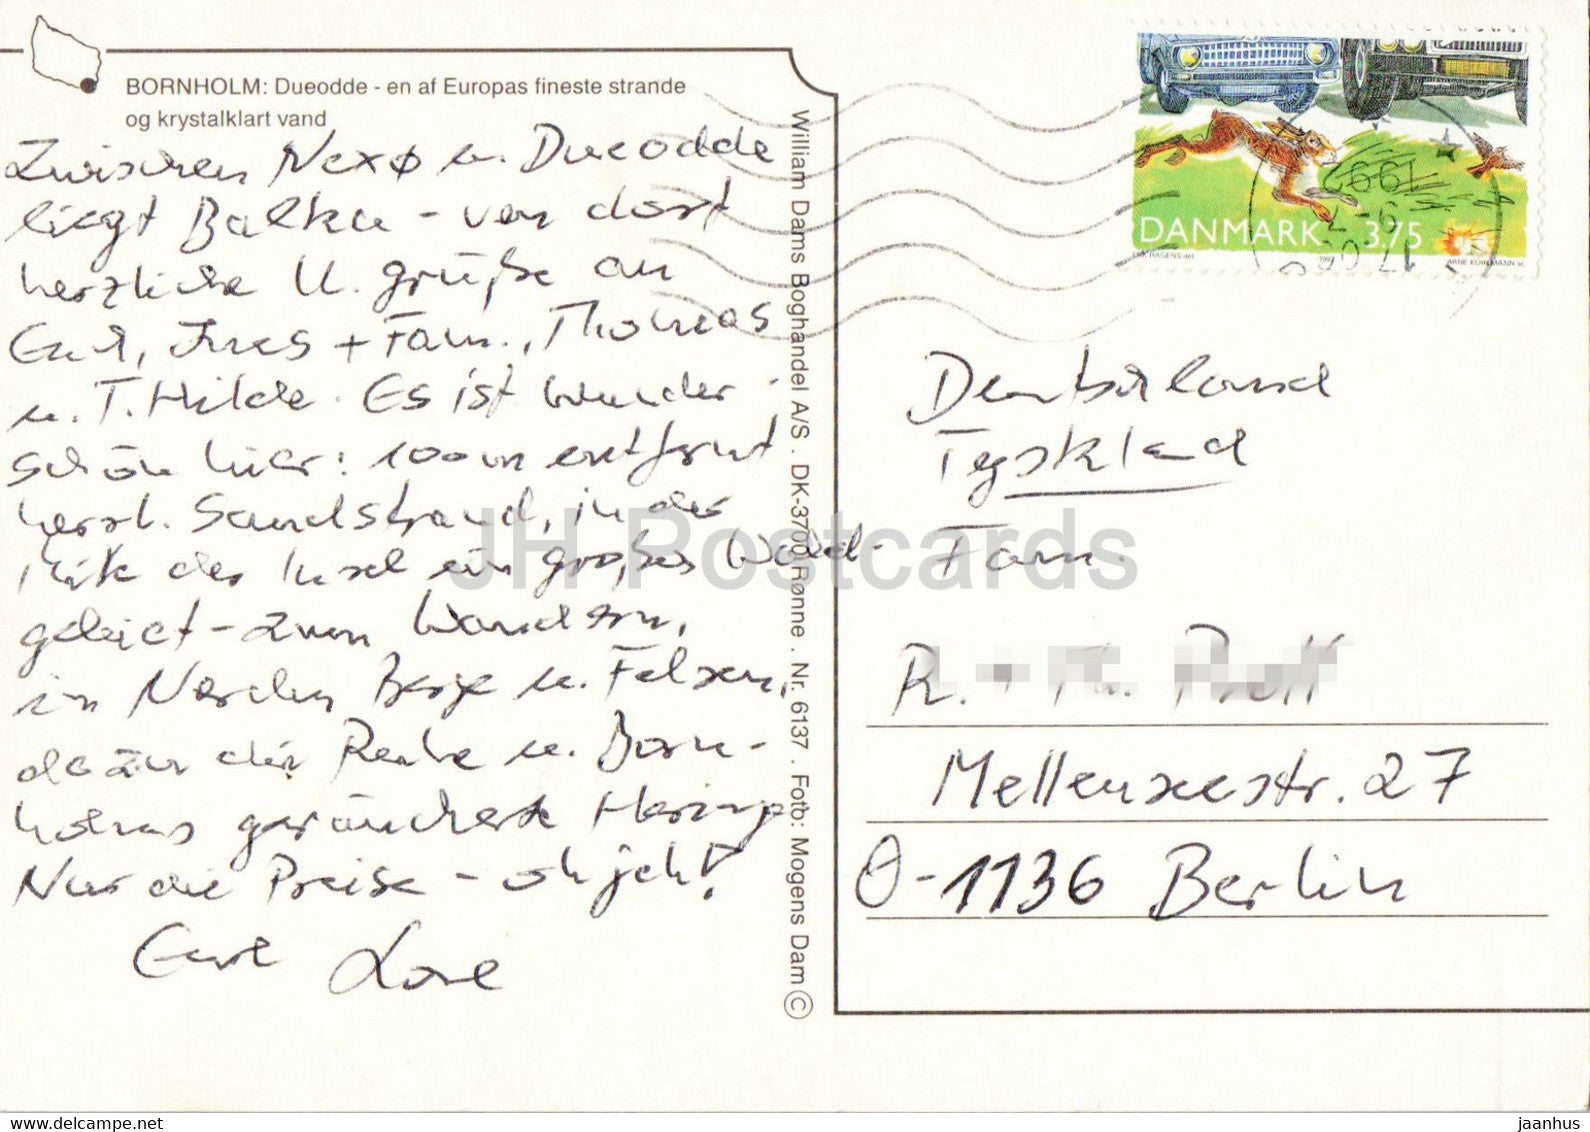 BORNHOLM: Dueodde - en af Europas fineste strande
og krystalklart vand
Zwischen Nexø u. Dueodde
liegt Balka - von dort
herzliche U. grüße an
Euch, Ines + Fam., Thomas
u. T. Hilde. Es ist wunder-
schön hier: 100m entfernt
herrl. Sandstrand, in der
Mitte der Insel ein großes Wald-
gebiet - zum Wandern,
in Norden Berge u. Felsen,
dazu die Ruhe u. Born-
holms geräucherte Heringe
Nur die Preise - oh jeh!
Eure Lore
William Dams Boghandel A/S . DK-3700 Rønne . Nr. 6137 . Foto: Mogens Dam ©
DANMARK 3.75
HAGENS del.
1992
ARNE KÜHLMANN sc.
1992
Deutschland
Tyskland
Fam
R. + Th.
Mellenseestr. 27
O-1136 Berlin
JH Postcards
www.delcampe.net
jaanhus